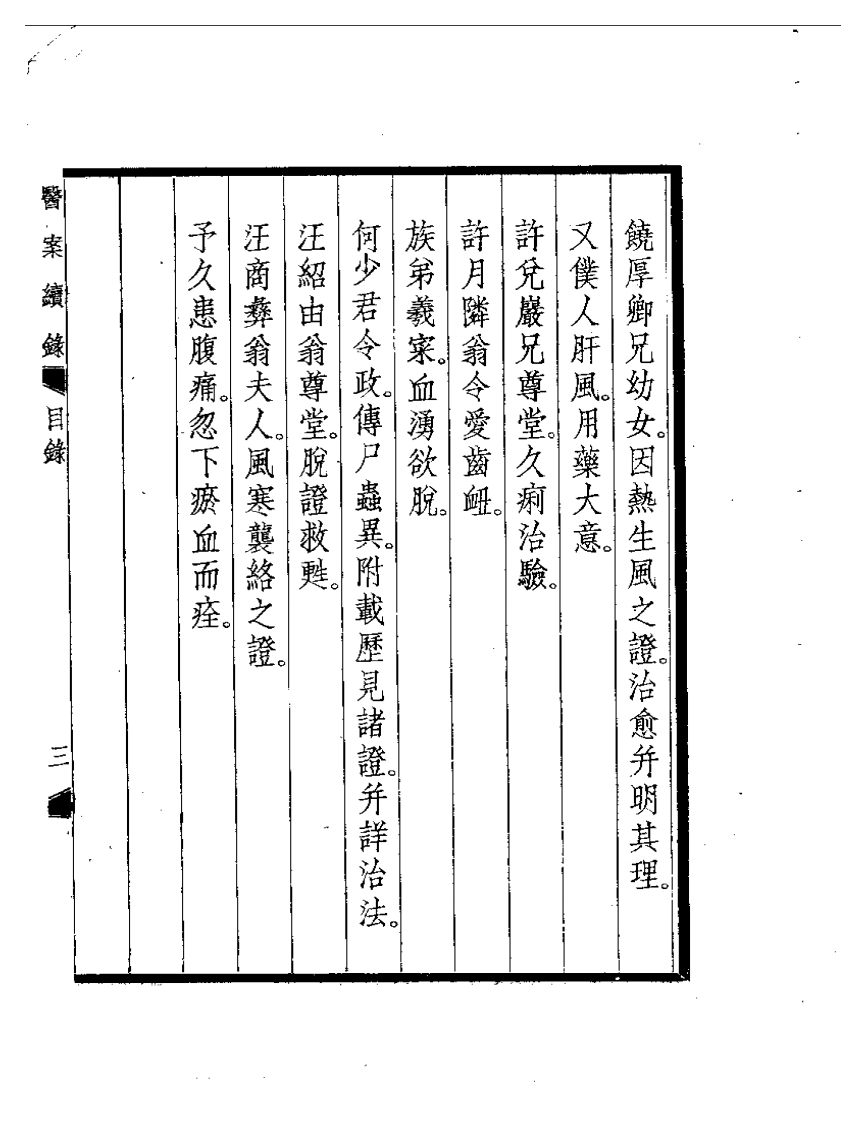 饒厚卿兄幼女。因熱生風之證。治愈幷明其理。
又僕人肝風。用藥大意。
許兌巖兄尊堂。久痢治驗。
許月隣翁令愛齒衄。
族弟羲寀。血湧欲脫。
何少君令政。傳尸蟲異。附載歷見諸證。幷詳治法。
汪紹由翁尊堂。脫證救甦。
汪商彝翁夫人。風寒襲絡之證。
予久患腹痛。忽下瘀血而痊。
醫案續錄 目錄 三